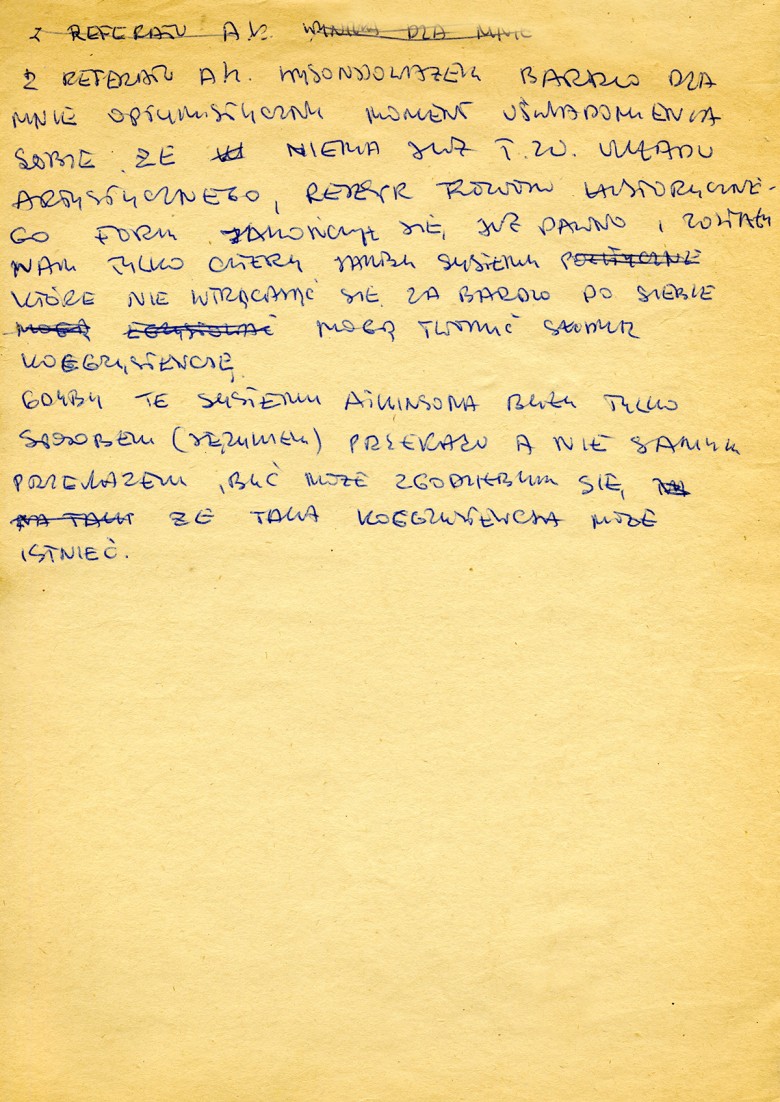 Z REFERATU A.K. WYNIKA DLA MNIE
Z REFERATU A K. WYSONDOWAŁEM BARDZO DLA
MNIE OPTYMISTYCZNY MOMENT UŚWIADOMIENIA
SOBIE ZE NIEMA JUZ T.ZW. UKŁADU
ARTYSTYCZNEGO, REJESTR ROZWOJU HISTORYCZNE-
GO FORM ZAKOŃCZYŁ SIĘ JUZ DAWNO I ZOSTAŁY
NAM TYLKO CZTERY SYSTEMY POLITYCZNE
KTÓRE NIE WTRĄCAJĄC SIĘ ZA BARDZO DO SIEBIE
MOGĄ EGZYSTOWAĆ MOGĄ TWORZYĆ
KOEGZYSTENCJĘ
GDYBY TE SYSTEMY ATKINSONA BYŁY TYLKO
SPOSOBEM (JĘZYKIEM) PRZEKAZU A NIE SAMYM
PRZEKAZEM, BYĆ MOŻE ZGODZIŁBYM SIĘ,
NA TAKĄ ZE TAKA KOEGZYSTENCJA MOŻE
ISTNIEĆ.